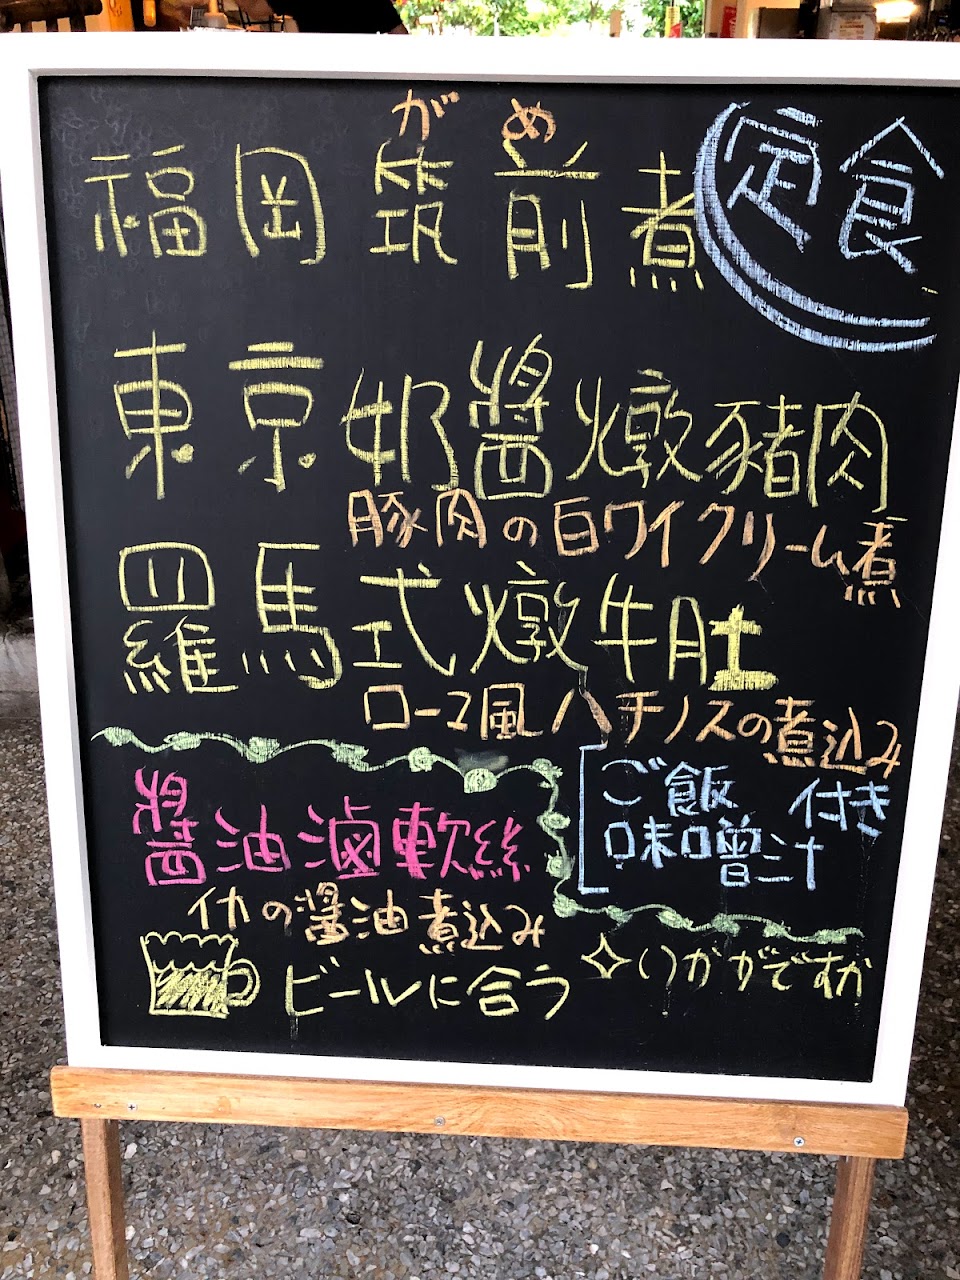 がめ
福岡筑前煮
定食
東京奶醬燉豬肉
豚肉の白ワイクリーム煮
羅馬式燉牛肚
ローマ風ハチノスの煮込み
ご飯
味噌汁
付き
醬油滷軟絲
イカの醬油煮込み
ビールに合う
いかがですか